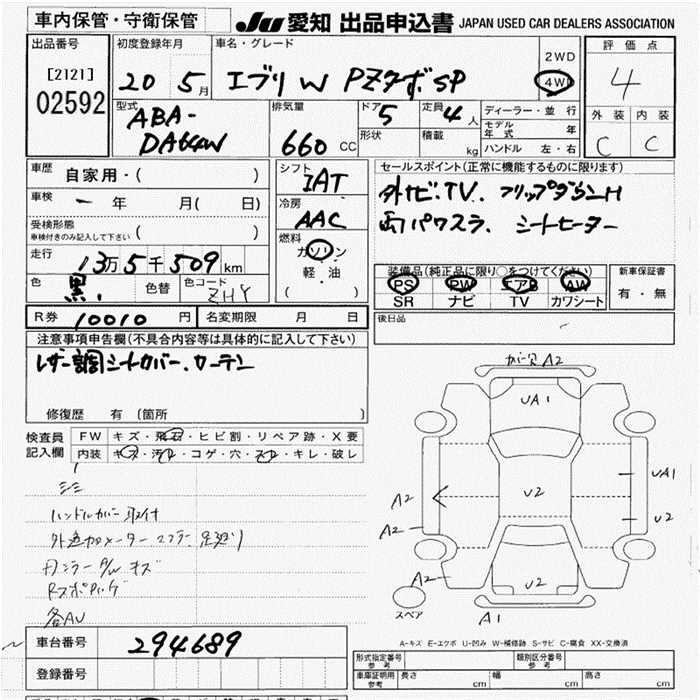 車内保管・守衛保管
JU 愛知 出品申込書 JAPAN USED CAR DEALERS ASSOCIATION
出品番号
[2121]
02592
初度登録年月
20 5月
車名・グレード
エブリ W PZターボSP
2WD
4WD
評価点
4
外装 内装
C C
型式
ABA-
DA64W
排気量
660 CC
ドア
5
形状
定員
4人
積載
kg
ディーラー・並行
モデル年式 年
ハンドル 左・右
車歴 自家用・( )
車検 一 年 月( 日)
受検形態
車検付きのみ記入して下さい ( )
走行 13万5千509km
色 黒. 色替 色コード ZHY
シフト
IAT
冷房
AAC
燃料
ガソリン
軽・油
( )
セールスポイント(正常に機能するものに限ります)
外ナビ.TV. フリップダウンM
両パワスラ. シートヒーター
装備品(純正品に限り○をつけてください)
PS PW エアB AW
SR ナビ TV カワシート
新車保証書
有・無
R券 10010 円 名変期限 月 日
後日品
注意事項申告欄(不具合内容等は具体的に記入して下さい)
レザー調シートカバー. カーテン
修復歴 有 (箇所 )
検査員記入欄
FW キズ・飛石・ヒビ割・リペア跡・X要
内装 キズ・汚れ・コゲ・穴・スレ・キレ・破レ
シミ
ハンドルカバー取付
外追加メーター マフラー 足廻り
各AU
カバー欠 A2
UA1
UA1
U2
U2
A2
A2
A2
U2
スペア
A1
A-キズ E-エクボ U-凹み W-補修跡 S-サビ C-腐食 XX-交換済
車台番号 294689
登録番号
形式指定番号 参考
類別区分番号 参考
車庫証明用 参考 長さ cm 幅 cm 高さ cm